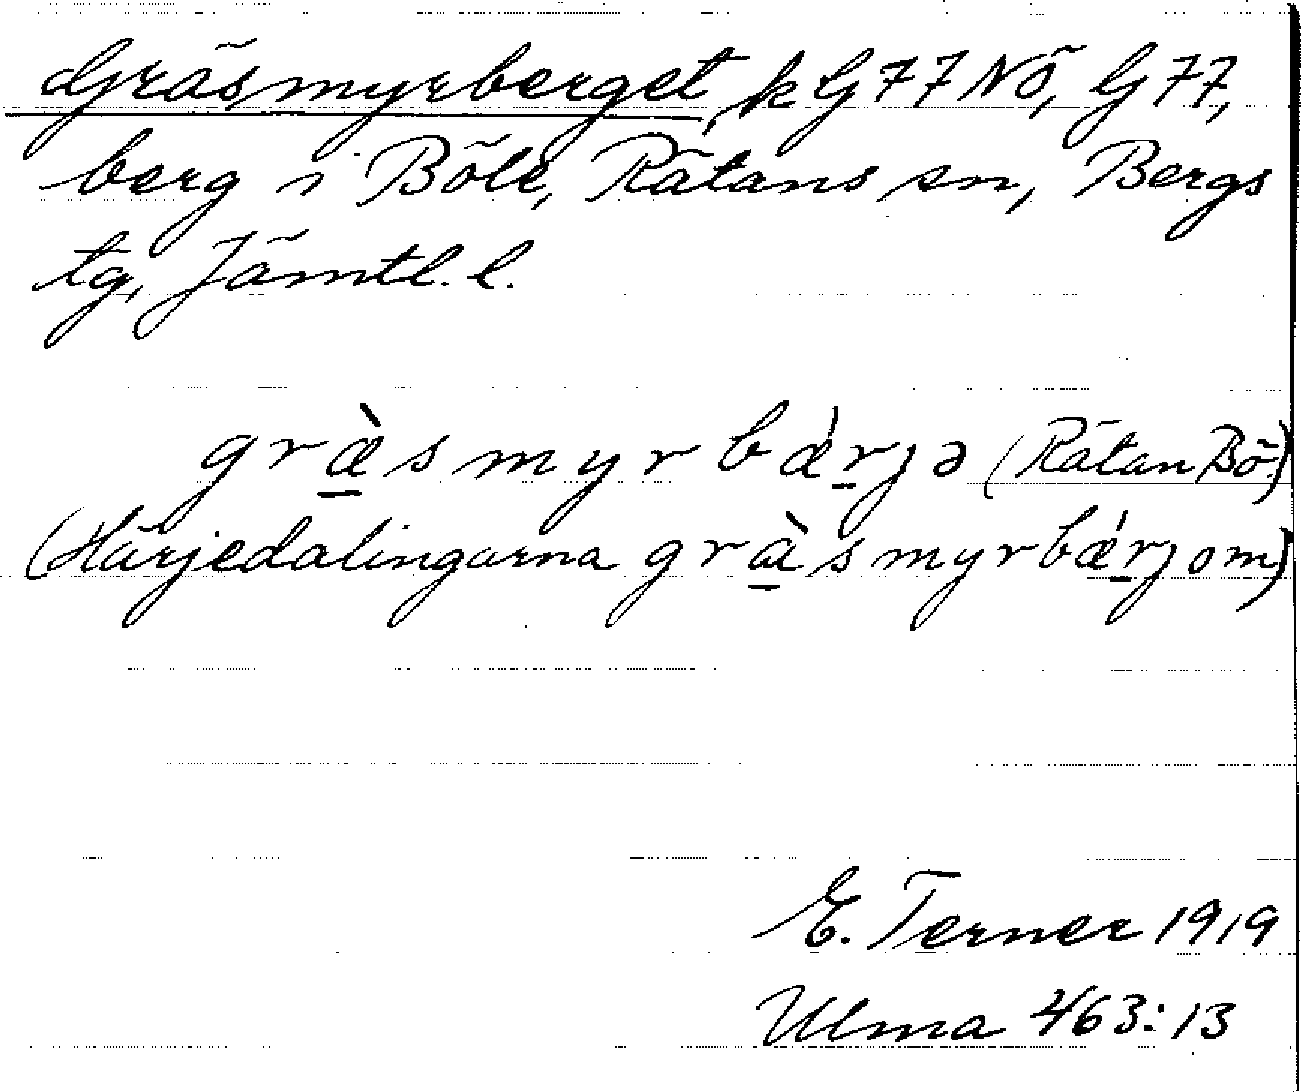 Gräsmyrberget, k G77NÖ, G77,
berg i Böle, Rätans sn, Bergs
tg, Jämtl. l.
græ̀smyrbǽrjə (Rätan Bö.)
(Härjedalingarna grà̱smyrbǽrjom)
E. Terner 1919
Ulma 463:13